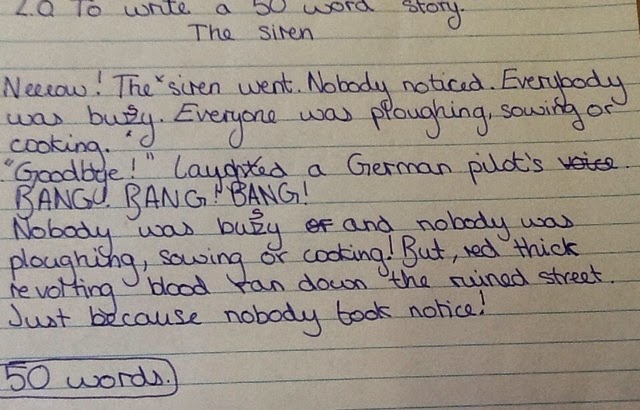 L.O To write a 50 word story.
The siren
Neeeow! The siren went. Nobody noticed. Everybody
was busy. Everyone was ploughing, sowing or
cooking.
"Goodbye!" laughed a German pilot's voice.
BANG! BANG! BANG!
Nobody was busy or and nobody was
ploughing, sowing or cooking! But, red thick
revolting blood ran down the ruined street.
Just because nobody took notice!
50 words.